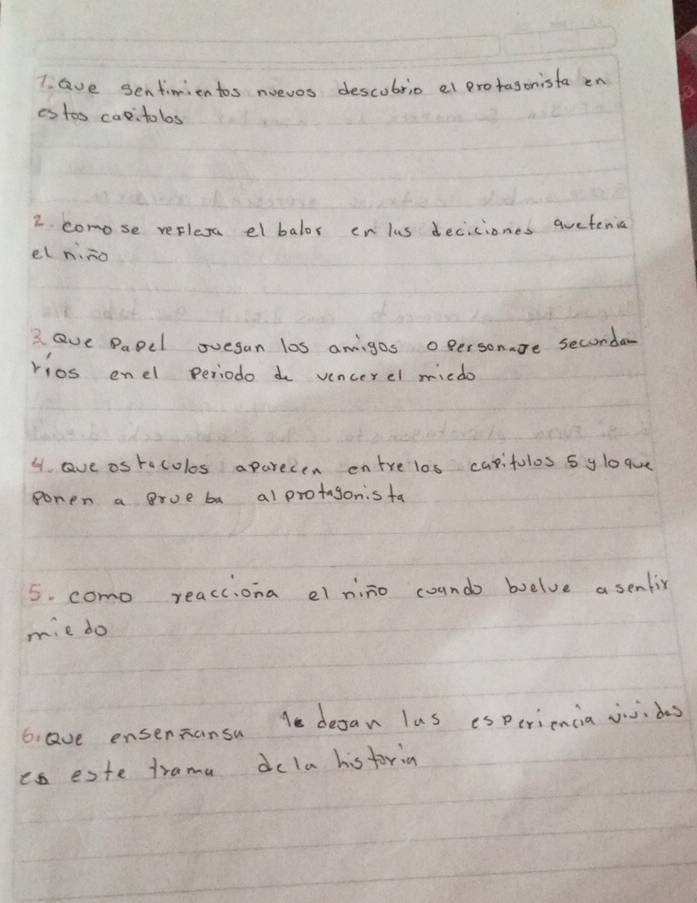 1. Que sentimientos nuevos descubrio el protagonista en
estos capitolos
2. como se refleja el balor en las deciciones quetenia
el niño
3. Que Papel juegan los amigos o Personaje secunda-
rios en el periodo de vencer el miedo
4. Que ostacolos aparecen entre los capitulos 5 y loque
ponen a prueba al protagonista
5. como reacciona el niño cuando buelve a sentir
miedo
6. Que enseñansa le dejan las esperiencia vividas
en este trama dela historia